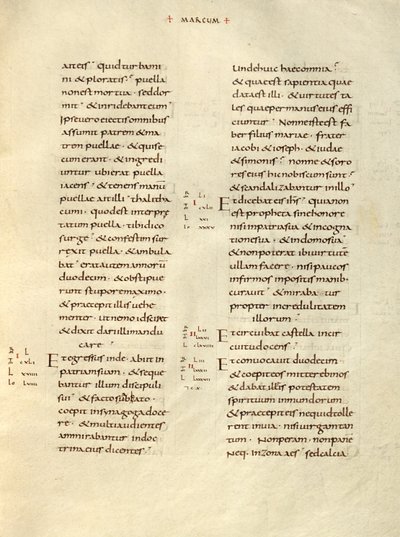 + MARCUM +
aiteis· quid turbami
ni & ploratis? puella
non est mortua· sed dor
mit· & inridebant eum·
Ipse vero eiectis omnibus
assumit patrem & ma
trem puellae· & qui se
cum erant· & ingredi
untur ubi erat puella
iacens· & tenens manū
puellae ait illi· thalitha
cumi· quod est interpre
tatum puella· tibi dico
surge· & confestim sur
rexit puella & ambula
bat· erat autem annorū
duodecim· & obstipue
runt stupore maximo·
& praecepit illis vehe
menter· ut nemo id sciret
& dixit dari illi mandu
care·
Et egressus inde· abiit in
patriam suam· & seque
bantur illum discipuli
sui· & facto sabbato·
coepit in synagoga doce
re· & multi audientes
ammirabantur in doc
trina eius dicentes·
Unde huic haec omnia?
& quae est sapientia quae
data est illi· & virtutes ta
les quae per manus eius effi
ciuntur? Nonne iste est fa
ber filius mariae· frater
iacobi & ioseph· & iudae
& simonis? nonne & soro
res eius hic nobiscum sunt?
& scandalizabantur in illo·
Et dicebat eis ihs· quia non
est propheta sine honore
nisi in patria sua & in cogna
tione sua· & in domo sua·
& non poterat ibi virtutē
ullam facere· nisi paucos
infirmos impositis manib·
curavit· & mirabatur
propter incredulitatem
illorum·
Et circuibat castella in cir
cuitu docens·
Et convocavit duodecim·
& coepit eos mittere binos
& dabat illis potestatem
spirituum immundorum
& praecepit eis ne quid tolle
rent in via· nisi virgam tan
tum· Non peram· non pane
neq· in zona aes· sed calcia